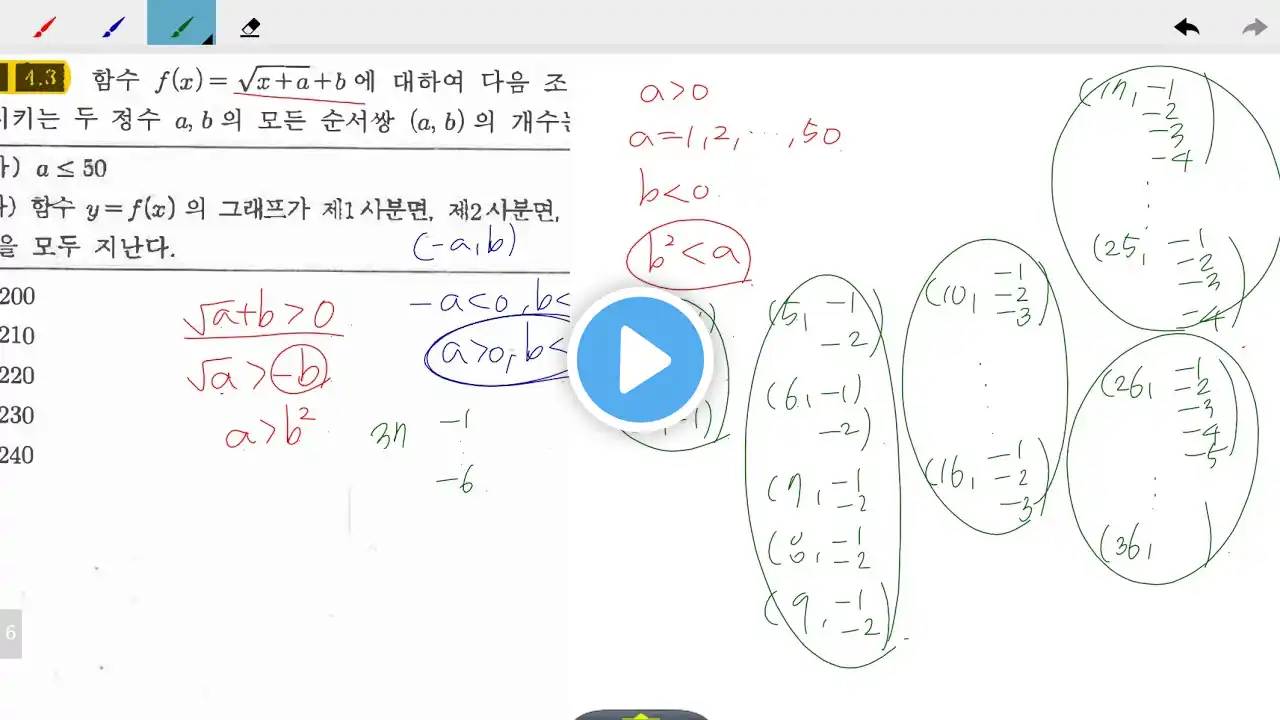 4.3 함수 f(x)=√(x+a)+b에 대하여 다음 조
시키는 두 정수 a, b의 모든 순서쌍 (a, b)의 개수는
가) a ≤ 50
나) 함수 y=f(x)의 그래프가 제1사분면, 제2사분면,
을 모두 지난다.
200
210
220
230
240
(-a, b)
-a<0, b<
a>0, b<
√a+b>0
√a>-b
a>b²
37 -1
⋮
-6
a>0
a=1, 2, ⋯, 50
b<0
b²<a
-1)
(5, -1
-2)
(6, -1)
-2)
(7, -1
-2
(8, -1
-2
(9, -1
-2)
(10, -1
-2
-3)
⋮
(16, -1
-2
-3)
(17, -1
-2
-3
-4)
⋮
(25, -1
-2
-3
-4)
(26, -1
-2
-3
-4
-5)
⋮
(36, )
6